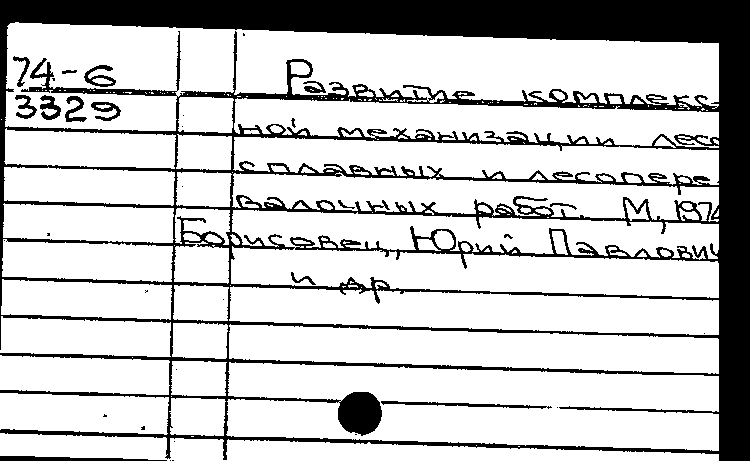 74-6
3329
Развитие комплекс-
ной механизации лесо
сплавных и лесопере-
валочных работ. М., 1974
Борисовец, Юрий Павлович
и др.